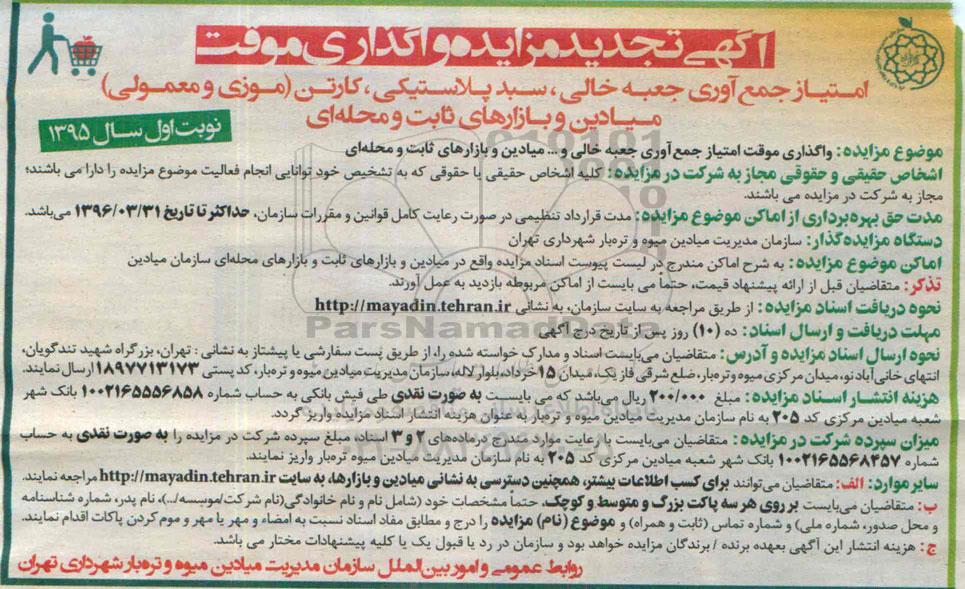 آگهی تجدید مزایده واگذاری موقت
امتیاز جمع آوری جعبه خالی، سبد پلاستیکی، کارتن (موزی و معمولی)
میادین و بازارهای ثابت و محله‌ای
نوبت اول سال ۱۳۹۵
موضوع مزایده: واگذاری موقت امتیاز جمع آوری جعبه خالی و ... میادین و بازارهای ثابت و محله‌ای
اشخاص حقیقی و حقوقی مجاز به شرکت در مزایده: کلیه اشخاص حقیقی یا حقوقی که به تشخیص خود توانایی انجام فعالیت موضوع مزایده را دارا می باشند؛
مجاز به شرکت در مزایده می باشند.
مدت حق بهره‌برداری از اماکن موضوع مزایده: مدت قرارداد تنظیمی در صورت رعایت کامل قوانین و مقررات سازمان، حداکثر تا تاریخ ۱۳۹۶/۰۳/۳۱ می‌باشد.
دستگاه مزایده‌گذار: سازمان مدیریت میادین میوه و تره‌بار شهرداری تهران
اماکن موضوع مزایده: به شرح اماکن مندرج در لیست پیوست اسناد مزایده واقع در میادین و بازارهای ثابت و بازارهای محله‌ای سازمان میادین
تذکر: متقاضیان قبل از ارائه پیشنهاد قیمت، حتماً می بایست از اماکن مربوطه بازدید به عمل آورند.
نحوه دریافت اسناد مزایده: از طریق مراجعه به سایت سازمان، به نشانی http://mayadin.tehran.ir
مهلت دریافت و ارسال اسناد: ده (۱۰) روز پس از تاریخ درج آگهی
نحوه ارسال اسناد مزایده و آدرس: متقاضیان می‌بایست اسناد و مدارک خواسته شده را، از طریق پست سفارشی یا پیشتاز به نشانی: تهران، بزرگراه شهید تندگویان،
انتهای خانی‌آباد نو، میدان مرکزی میوه و تره‌بار، ضلع شرقی فاز یک، میدان ۱۵ خرداد، بلوار لاله، سازمان مدیریت میادین میوه و تره‌بار، کد پستی ۱۸۹۷۷۱۳۱۷۳ ارسال نمایند.
هزینه انتشار اسناد مزایده: مبلغ ۲۰۰/۰۰۰ ریال می‌باشد که می بایست به صورت نقدی طی فیش بانکی به حساب شماره ۱۰۰۲۱۶۵۵۵۶۸۵۸ بانک شهر
شعبه میادین مرکزی کد ۲۰۵ به نام سازمان مدیریت میادین میوه و تره‌بار به عنوان هزینه انتشار اسناد مزایده واریز گردد.
میزان سپرده شرکت در مزایده: متقاضیان می‌بایست با رعایت موارد مندرج در ماده‌های ۲ و ۳ اسناد، مبلغ سپرده شرکت در مزایده را به صورت نقدی به حساب
شماره ۱۰۰۲۱۶۵۵۶۸۴۵۷ بانک شهر شعبه میادین مرکزی کد ۲۰۵ به نام سازمان مدیریت میادین میوه تره‌بار واریز نمایند.
سایر موارد: الف: متقاضیان می‌توانند برای کسب اطلاعات بیشتر، همچنین دسترسی به نشانی میادین و بازارها، به سایت http://mayadin.tehran.ir مراجعه نمایند.
ب: متقاضیان می‌بایست بر روی هر سه پاکت بزرگ و متوسط و کوچک، حتماً مشخصات خود (شامل نام و نام خانوادگی (نام شرکت/موسسه/...)، نام پدر، شماره شناسنامه
و محل صدور، شماره ملی) و شماره تماس (ثابت و همراه) و موضوع (نام) مزایده را درج و مطابق مفاد اسناد نسبت به امضاء و مهر یا مهر و موم کردن پاکات اقدام نمایند.
ج: هزینه انتشار این آگهی بعهده برنده / برندگان مزایده خواهد بود و سازمان در رد یا قبول یک یا کلیه پیشنهادات مختار می باشد.
روابط عمومی و امور بین‌الملل سازمان مدیریت میادین میوه و تره‌بار شهرداری تهران
ParsNamadData